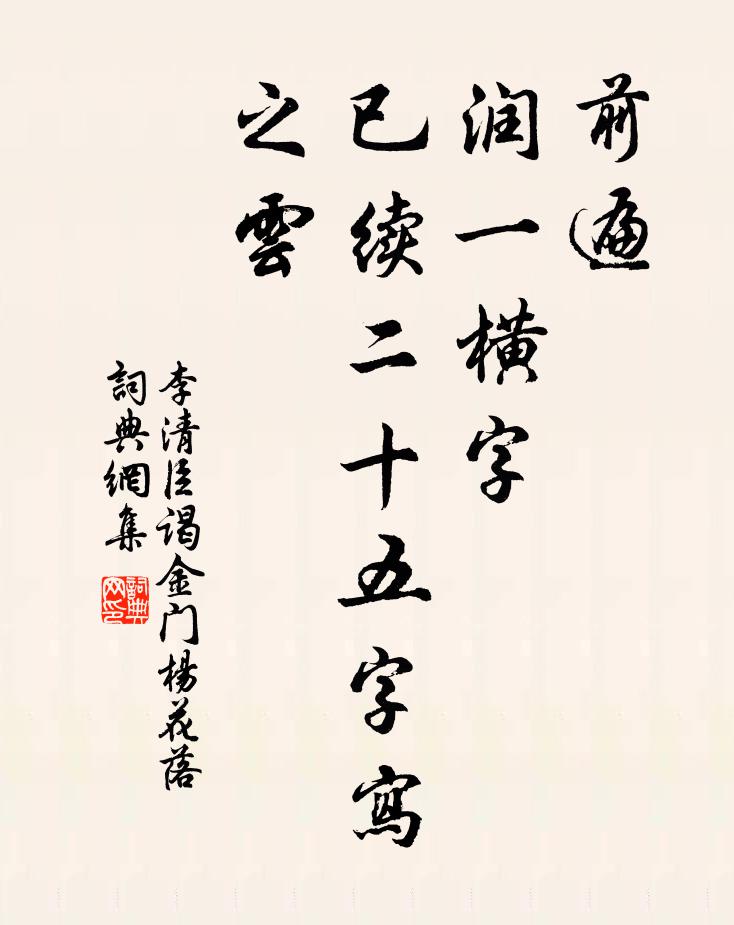 前遍
润一横字
已续二十五字寫
之雲
李清臣谒金门楊花落
詞典網集
詞典网印